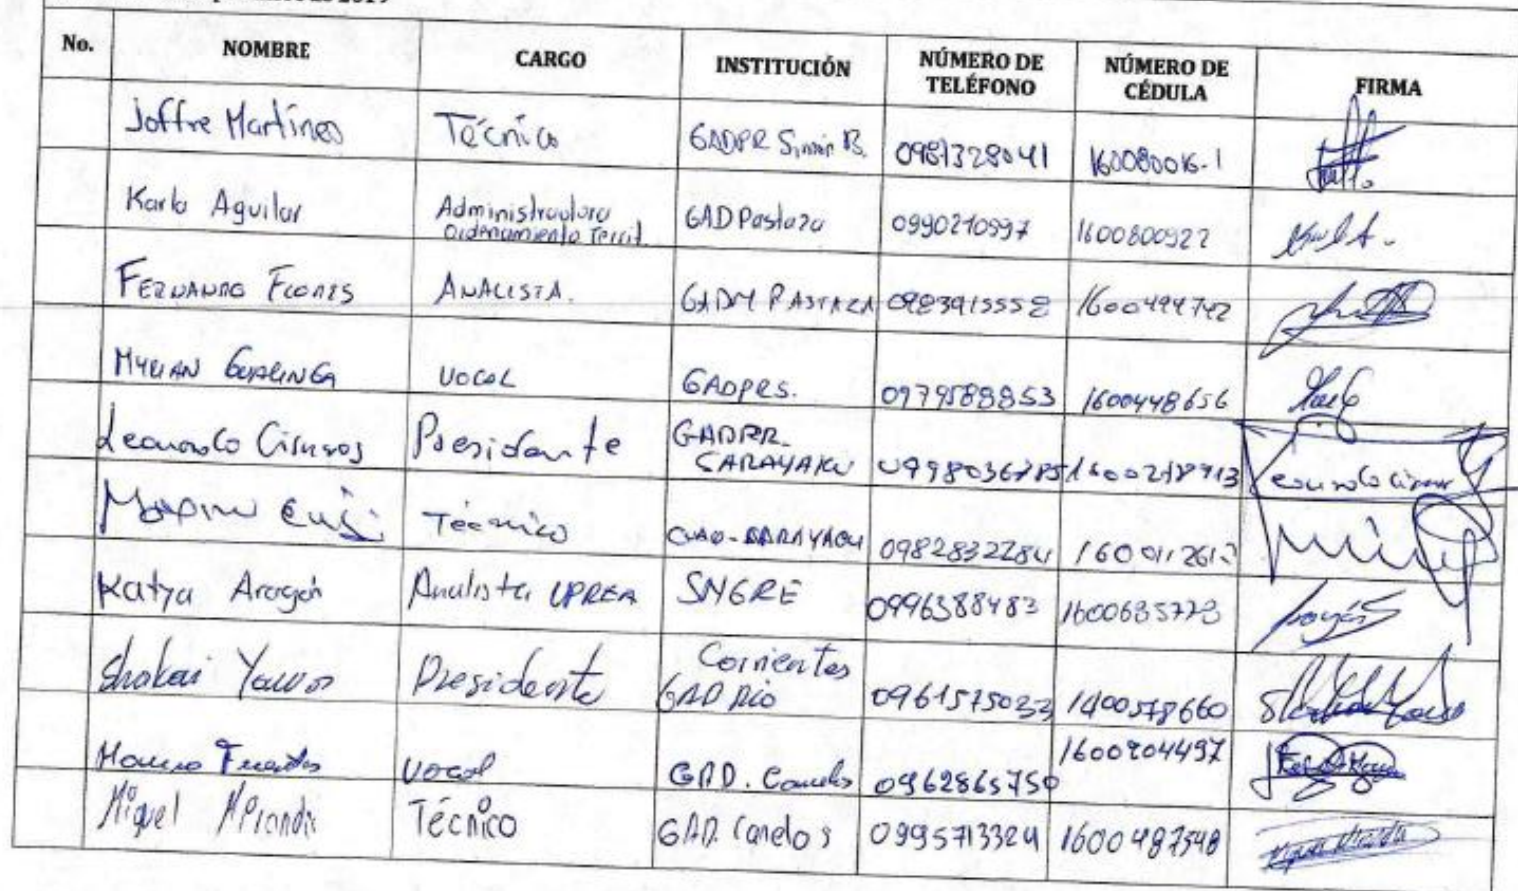 2019
No. NOMBRE CARGO INSTITUCIÓN NÚMERO DE TELÉFONO NÚMERO DE CÉDULA FIRMA
Joffre Martínez Técnico GADPR Simón B. 0981328041 160080016-1
Karla Aguilar Administradora Ordenamiento Territ. GAD Pastaza 0990210997 1600800922
FERNANDO FLORES ANALISTA. GADM PASTAZA 0983915552 1600494742
MYRIAN GUALINGA VOCAL GADPRS. 0979589853 1600448656
Leonardo Cisneros Presidente GADPR. SARAYAKU
Técnico 0982832284
Katya Aragón Analista UPREA SNGRE 0996388483 1600685773
Presidente Corrientes GAD RIO 0961575033 1400578660
Fuentes Vocal GAD. Canelos 0962865750 1600204497
Miguel Miranda Técnico GAD. Canelos 0995713324 1600487548